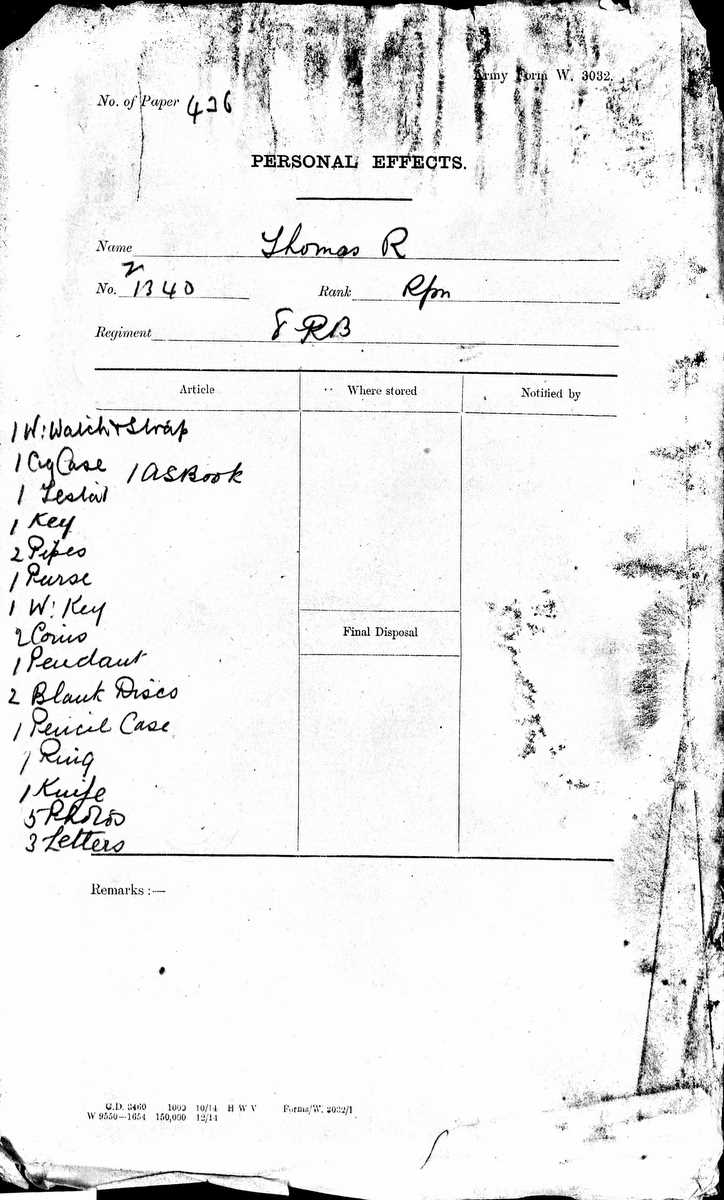 Army Form W. 3032.
No. of Paper 426
PERSONAL EFFECTS.
Name Thomas R
No. 1340 Rank Rfn
Regiment 8 RB
Article Where stored Notified by
1 W: Watch & Strap
1 Cig Case 1 ASBook
1
1 Key
2 Pipes
1 Purse
1 W: Key
2 Coins
1 Pendant
2 Blank Discs
Final Disposal
1 Pencil Case
1 Ring
1 Knife
5 Photos
3 Letters
Remarks :—
G.D. 3460 1000 10/14 H W V Forms/W. 3032/1
W 9550—1654 150,000 12/14